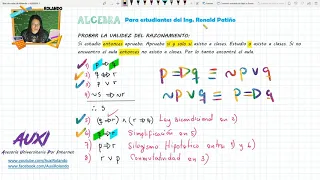 ROLANDO
ALGEBRA Para estudiantes del Ing. Renald Patiño
PROBAR LA VALIDEZ DEL RAZONAMIENTO:
Si estudio entonces apruebo. Apruebo si y solo si asisto a clases. Estudio o asisto a clases. Si no
encuentro el aula entonces no asisto a clases. Por lo tanto encontré el aula.
1) p → q
2) q ↔ r
3) p ∨ r
4) ~s → ~r
∴ s
5) (q → r) ∧ (r → q) Ley bicondicional en 2)
6) q → r Simplificación en 5)
7) p → r Silogismo Hipotético entre 1) y 6)
8) r ∨ p Conmutatividad en 3)
p ⇒ q ≡ ~p ∨ q
~p ∨ q ≡ p ⇒ q
AUXI
Asesoría Universitaria Por Internet
www.youtube.com/AuxiRolando
www.facebook.com/AuxiRolando